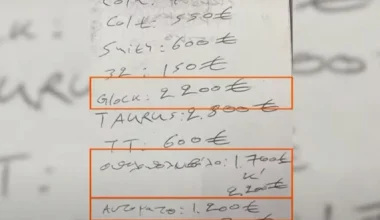 Colt: 550€
Smith: 600€
32: 150€
Glock: 2200€
TAURUS: 2.800€
TT: 600€
1.700€
κ'
2.200€
Αυτοματο: 1.200€